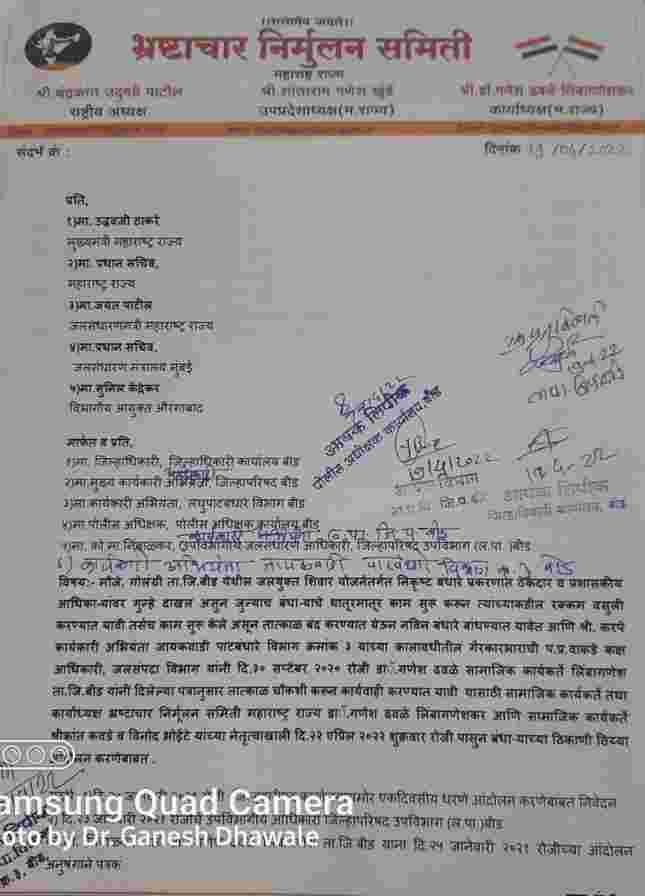 ।।सत्यमेव जयते।।
भ्रष्टाचार निर्मुलन समिती
महाराष्ट्र राज्य
श्री चंद्रकांत पाटील
श्री सीताराम गणेश
श्री डॉ गणेश ढवळे लिंबागणेशकर
राष्ट्रीय अध्यक्ष
उपप्रदेशाध्यक्ष(म.राज्य)
कार्याध्यक्ष(म.राज्य)
संदर्भ क्रं :
दिनांक 19/04/2022
प्रति,
१)मा. उद्धवजी ठाकरे
मुख्यमंत्री महाराष्ट्र राज्य
२)मा. प्रधान सचिव,
महाराष्ट्र राज्य
३)मा.जयंत पाटील
जलसंधारणमंत्री महाराष्ट्र राज्य
४)मा.प्रधान सचिव,
जलसंधारण मंत्रालय मुंबई
५)मा.सुनिल केंद्रेकर
विभागीय आयुक्त औरंगाबाद
मार्फत व प्रति,
१)मा. जिल्हाधिकारी, जिल्हाधिकारी कार्यालय बीड
२)मा.मुख्य कार्यकारी जिल्हापरिषद बीड
३)मा.कार्यकारी अभियंता, लघुपाटबंधारे विभाग बीड
४)मा.पोलीस अधिक्षक, पोलीस अधिक्षक कार्यालय बीड
५)मा. को.मा.निंबाळकर, उपविभागीय जलसंधारण अधिकारी, जिल्हापरिषद उपविभाग (ल.पा.)बीड
६) कार्यकारी अभियंता जायकवाडी पाटबंधारे विभाग क्र.3 बीड
आवक लिपीक
पोलीस अधीक्षक कार्यालय बीड
19/4/2022
19-4-22
आवक लिपीक
विषय:- मौजे. गोलंग्री ता.जि.बीड येथील जलयुक्त शिवार योजनेतंर्गत निकृष्ट बंधारे प्रकरणात ठेकेदार व प्रशासकीय
आधिका-यांवर गुन्हे दाखल असुन जुन्याच बंधा-याचे थातुरमातुर काम सुरू करून त्यांच्याकडील रक्कम वसुली
करण्यात यावी तसेच काम सुरू केले असुन तात्काळ बंद करण्यात येऊन नविन बंधारे बांधण्यात यावेत आणि श्री. करपे
कार्यकारी अभियंता जायकवाडी पाटबंधारे विभाग क्रमांक ३ यांच्या कालावधीतील गैरकारभाराची प.प्र.वाकडे कक्ष
आधिकारी, जलसंपदा विभाग यांनी दि.३० सप्टेंबर २०२० रोजी डाॅ.गणेश ढवळे सामाजिक कार्यकर्ते लिंबागणेश
ता.जि.बीड यांनी दिलेल्या पत्रानुसार तात्काळ चौकशी करून कार्यवाही करण्यात यावी यासाठी सामाजिक कार्यकर्ते तथा
कार्याध्यक्ष भ्रष्टाचार निर्मूलन समिती महाराष्ट्र राज्य डाॅ.गणेश ढवळे लिंबागणेशकर आणि सामाजिक कार्यकर्ते
श्रीकांत कवडे व विनोद भोईटे यांच्या नेतृत्वाखाली दि.२२ एप्रिल २०२२ शुक्रवार रोजी पासुन बंधा-याच्या ठिकाणी ठिय्या
करणेबाबत .
एकदिवसीय धरणे आंदोलन करणेबाबत निवेदन
दि.२३ जानेवारी २०२१ रोजीचे उपविभागीय आधिकारी जिल्हापरिषद उपविभाग (ल.पा.)बीड
ता.जि बीड यांना दि.२५ जानेवारी २०२१ रोजीच्या आंदोलन
अनुषंगाने पत्रक
amsung Quad Camera
hoto by Dr. Ganesh Dhawale